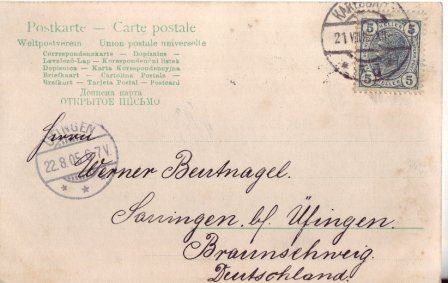 Postkarte - Carte postale
Weltpostverein Union postale universelle
Correspondenzkarte - Dopisnice -
Levelező-Lap - Korespondenční lístek
Dopisnica - Karta Korespondencyjna
Briefkaart - Cartolina Postale -
Brefkort - Tarjeta Postal - Postcard
Дописна карта
ОТКРЫТОЕ ПИСЬМО
21 VIII
5 5
5 5
22.8.05.6-7V.
Herrn
Werner Beutnagel.
b/ Üfingen.
Braunschweig.
Deutschland.